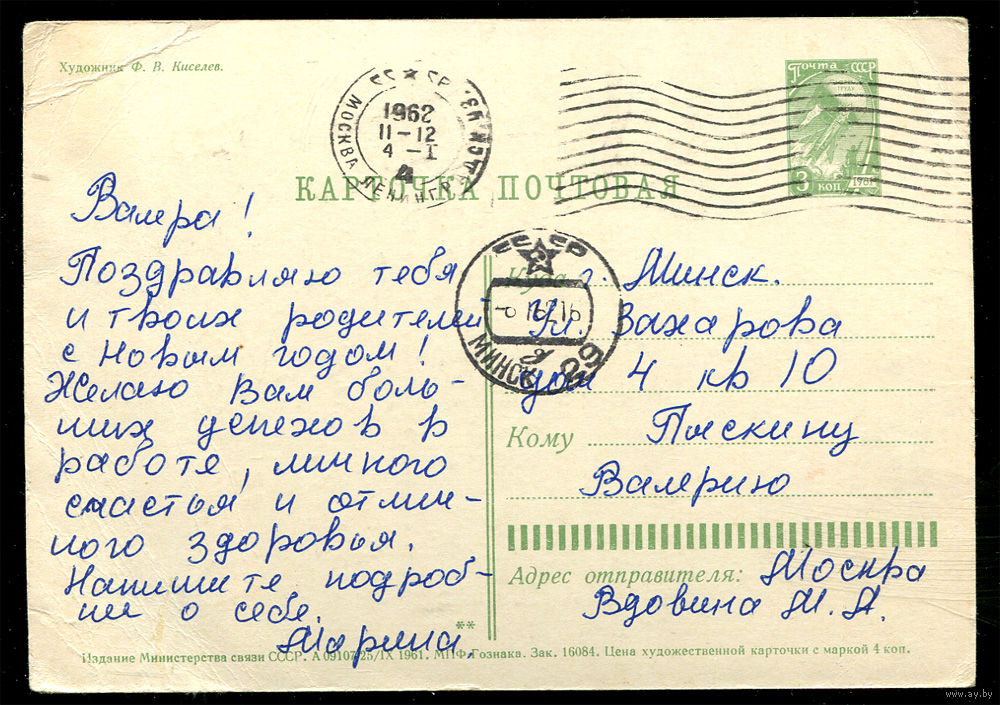 Художник Ф. В. Киселев.
СССР
МОСКВА
1962
11-12
4 -I
Почта СССР
3 коп 1961
КАРТОЧКА ПОЧТОВАЯ
Валера!
Поздравляю тебя
и твоих родителей
с Новым годом!
Желаю Вам боль-
ших успехов в
работе, личного
счастья и отлич-
ного здоровья.
Напишите подроб-
но о себе.
Марина.
СССР
МИНСК 29
Куда г. Минск.
Ул. Захарова
дом 4 кв 10
Кому Пяскину
Валерию
Адрес отправителя: Москва
Вдовина М. А.
**
Издание Министерства связи СССР. А 09107 25/IX 1961. МПФ Гознака. Зак. 16084. Цена художественной карточки с маркой 4 коп.
www.ay.by